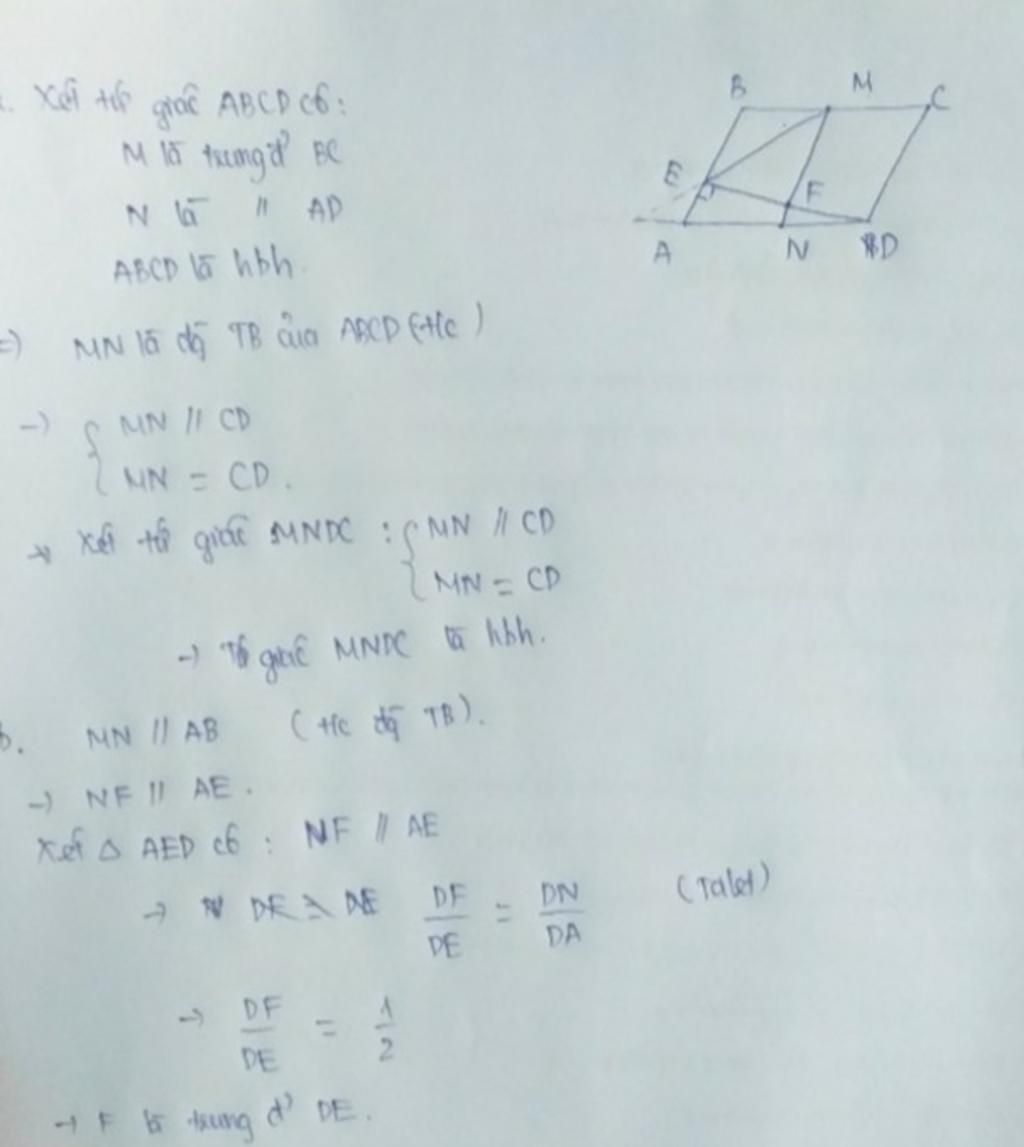 . Xét tứ giác ABCD có:
M là trung đ' BC
N là " AD
ABCD là hbh.
=) MN là đg TB của ABCD (t/c)
-) { MN // CD
MN = CD.
Xét tứ giác MNDC : { MN // CD
MN = CD
-) Tứ giác MNDC là hbh.
b. MN // AB (t/c đg TB).
-) NF // AE.
Xét Δ AED có : NF // AE
-) DF/DE = DN/DA (Talet)
-) DF/DE = 1/2
-) F là trung đ' DE.
B M C
E F
A N D